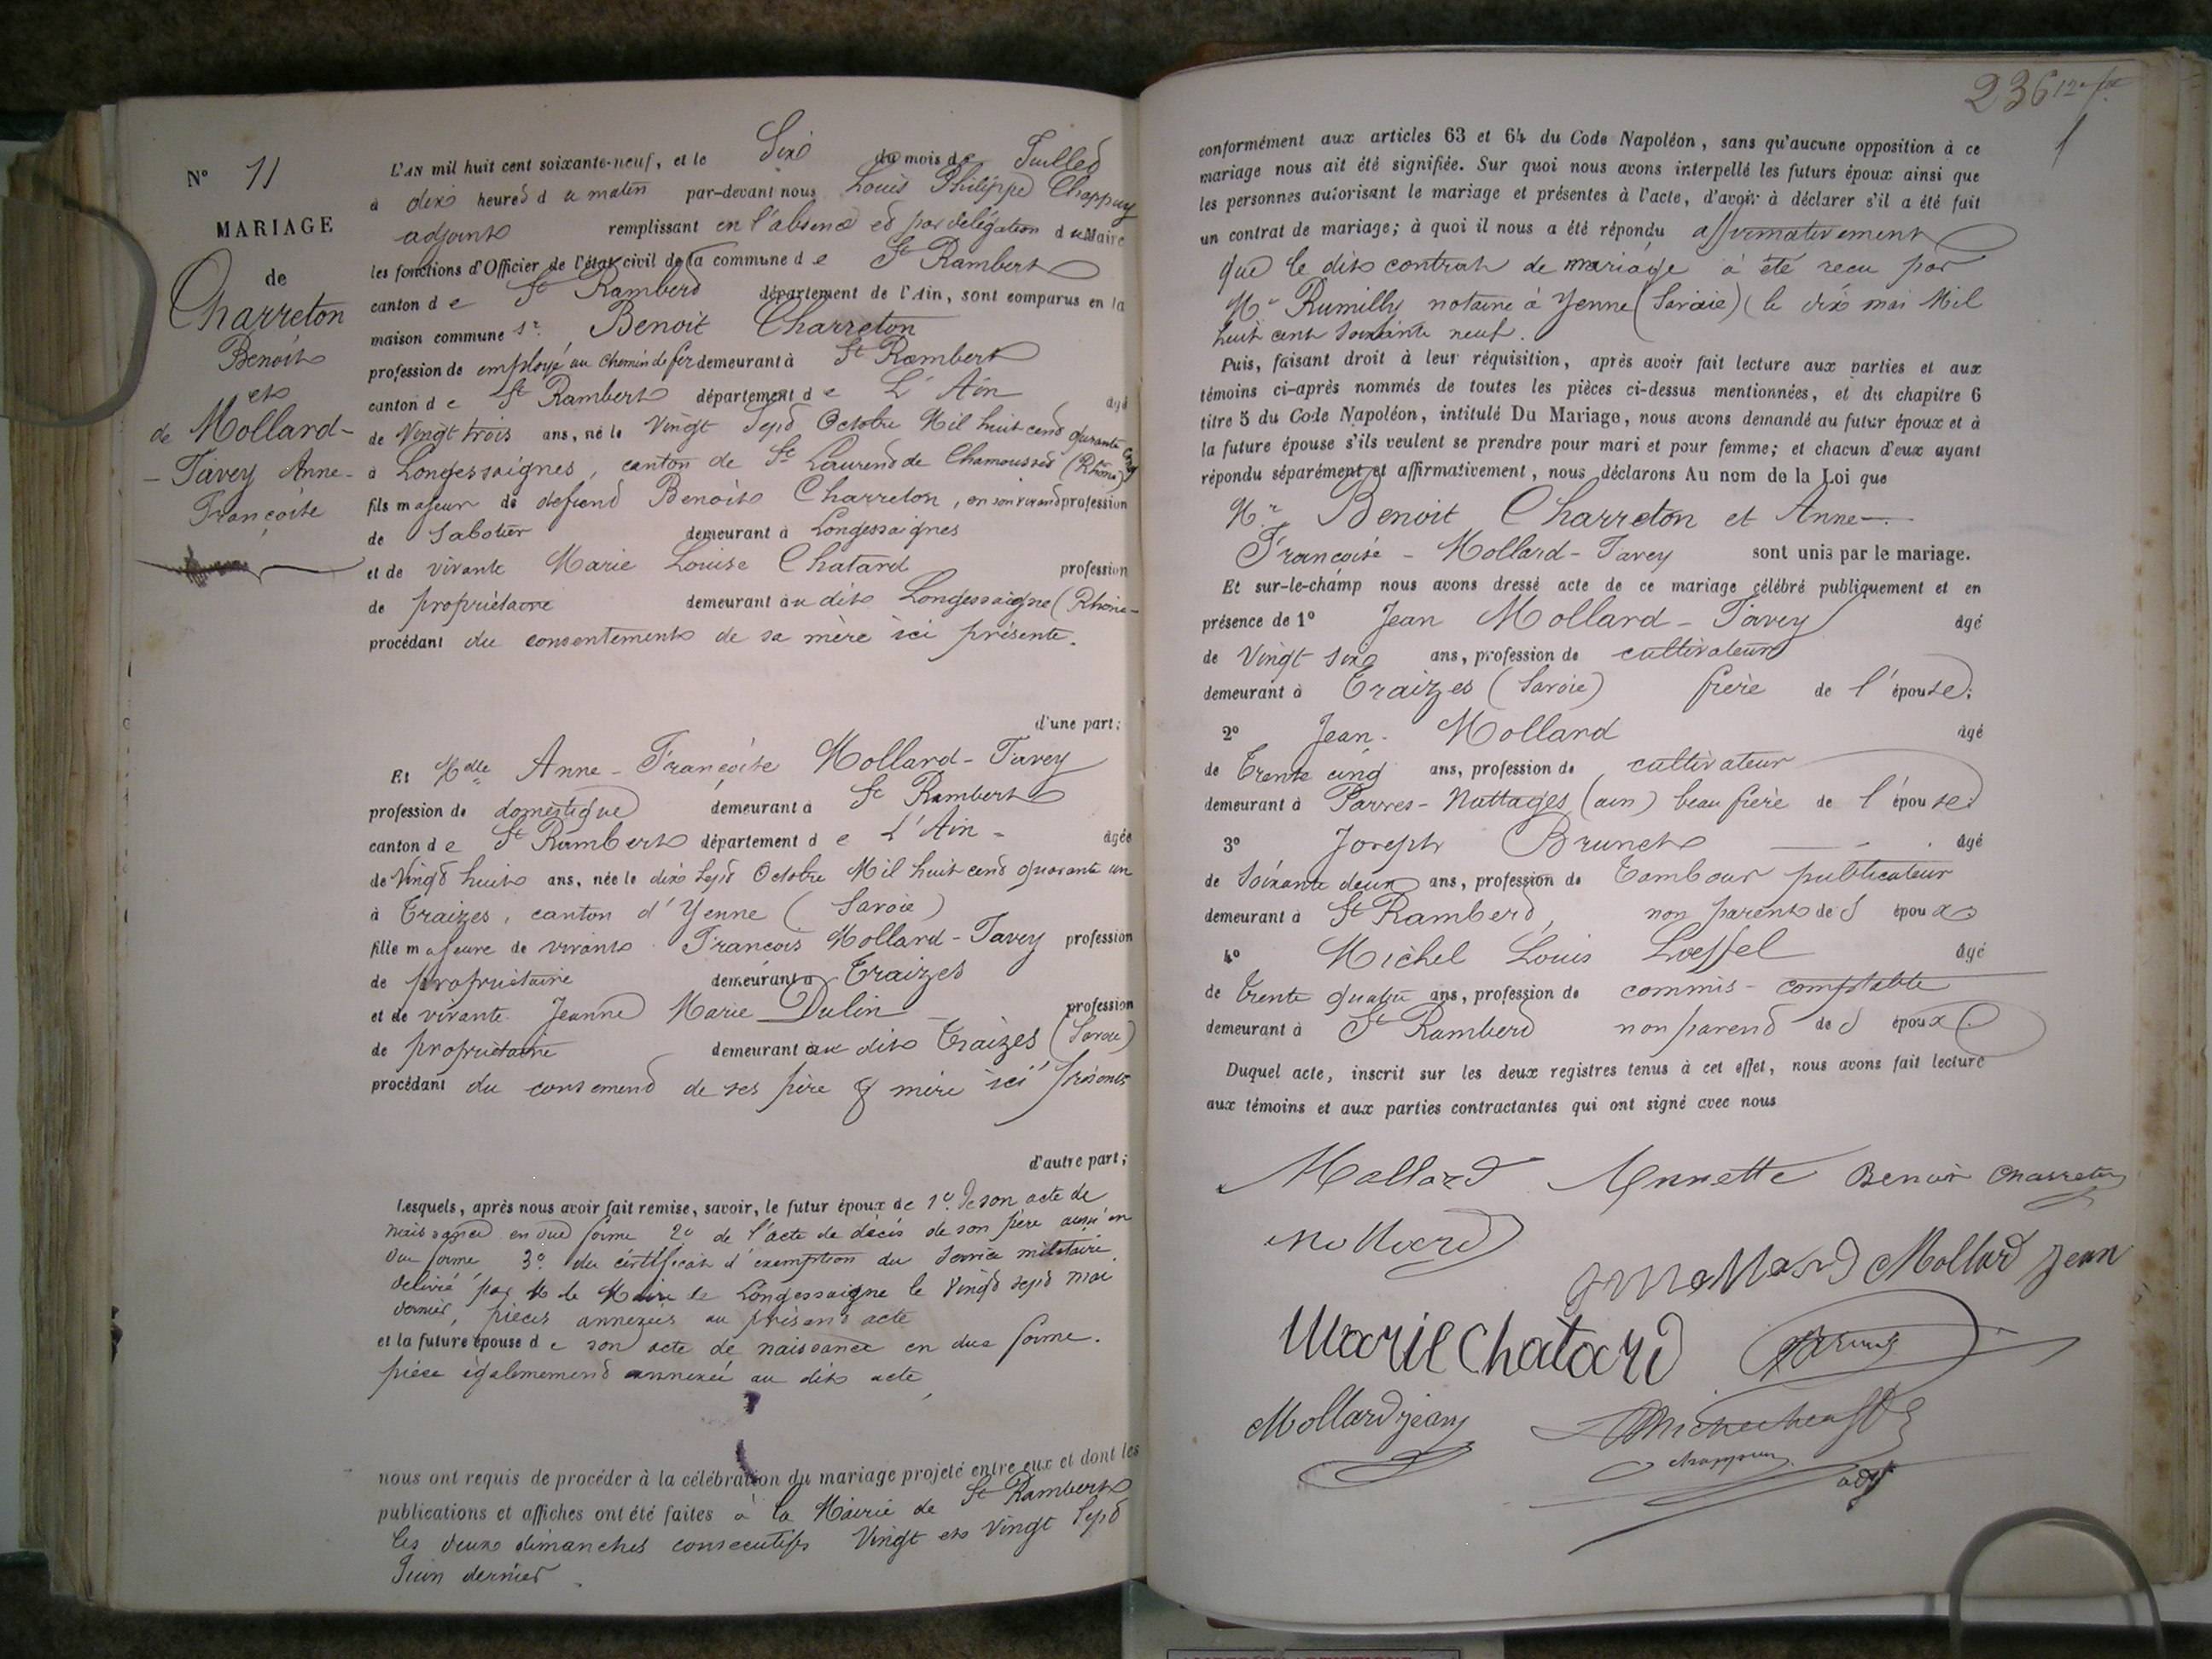 N° 11
MARIAGE
de
Charreton
Benoit
et
de Mollard-
- Tavey Anne-
Françoise
L'AN mil huit cent soixante-neuf, et le Six du mois de Juillet
à dix heures du matin par-devant nous Louis Philippe Chappuy
adjoint remplissant en l'absence et par délégation du Maire
les fonctions d'Officier de l'état civil de la commune de St Rambert
canton de St Rambert département de l'Ain, sont comparus en la
maison commune sr Benoit Charreton
profession de employé au chemin de fer demeurant à St Rambert
canton de St Rambert département de L'Ain âgé
de Vingt trois ans, né le Vingt Sept Octobre Mil huit cent quarante cinq
à Longessaignes, canton de St Laurent de Chamousset (Rhône)
fils majeur de defient Benoit Charreton, en son vivant profession
de Sabotier demeurant à Longessaignes
et de vivante Marie Louise Chatard profession
de propriétaire demeurant au dit Longessaigne (Rhône-
procédant du consentement de sa mère ici présente.
d'une part;
Et Melle Anne-Françoise Mollard-Tavey
profession de domestique demeurant à St Rambert
canton de St Rambert département de L'Ain- âgée
de Vingt huit ans, née le dix Sept Octobre Mil huit cent quarante un
à Traizes, canton d'Yenne (Savoie)
fille majeure de vivant François Mollard-Tavey profession
de propriétaire demeurant à Traizes
et de vivante Jeanne Marie Dulin profession
de propriétaire demeurant au dit Traizes (Savoie)
procédant du consement de ses père & mère ici présents
d'autre part;
Lesquels, après nous avoir fait remise, savoir, le futur époux de 1° de son acte de
naissance en due forme 2° de l'acte de décès de son père aussi en
due forme 3° du certificat d'exemption du Service militaire
délivré par M le Maire de Longessaigne le Vingt sept mai
dernier, pièces annexées au présent acte
et la future épouse de son acte de naissance en due forme.
pièce égalemement annexée au dit acte
nous ont requis de procéder à la célébration du mariage projeté entre eux et dont les
publications et affiches ont été faites à la Mairie de St Rambert
les deux dimanches consecutifs Vingt et Vingt Sept
Juin dernier.
236
conformément aux articles 63 et 64 du Code Napoléon, sans qu'aucune opposition à ce
mariage nous ait été signifiée. Sur quoi nous avons interpellé les futurs époux ainsi que
les personnes autorisant le mariage et présentes à l'acte, d'avoir à déclarer s'il a été fait
un contrat de mariage; à quoi il nous a été répondu affirmativement
que le dit contrat de mariage a été recu par
Me Rumilly notaire à Yenne (Savoie) le dix mai Mil
huit cent soixante neuf.
Puis, faisant droit à leur réquisition, après avoir fait lecture aux parties et aux
témoins ci-après nommés de toutes les pièces ci-dessus mentionnées, et du chapitre 6
titre 5 du Code Napoléon, intitulé Du Mariage, nous avons demandé au futur époux et à
la future épouse s'ils veulent se prendre pour mari et pour femme; et chacun d'eux ayant
répondu séparément et affirmativement, nous déclarons Au nom de la Loi que
Mr Benoit Charreton et Anne-
Françoise - Mollard-Tavey sont unis par le mariage.
Et sur-le-champ nous avons dressé acte de ce mariage célébré publiquement et en
présence de 1° Jean Mollard-Tavey âgé
de Vingt six ans, profession de cultivateur
demeurant à Traizes (Savoie) frère de l'épouse;
2° Jean Mollard âgé
de Trente cinq ans, profession de cultivateur
demeurant à Parves-Nattages (ain) beau frère de l'épouse;
3° Joseph Brunet âgé
de Soixante deux ans, profession de Tambour publicateur
demeurant à St Rambert, non parent des époux
4° Michel Louis Loeffel âgé
de Trente quatre ans, profession de commis-comptable
demeurant à St Rambert non parent des époux.
Duquel acte, inscrit sur les deux registres tenus à cet effet, nous avons fait lecture
aux témoins et aux parties contractantes qui ont signé avec nous
Mollard Annette Benoit Charreton
Mollard
Mollard Mollard Jean
Marie Chatard
Mollard jean
Chappuy
adj